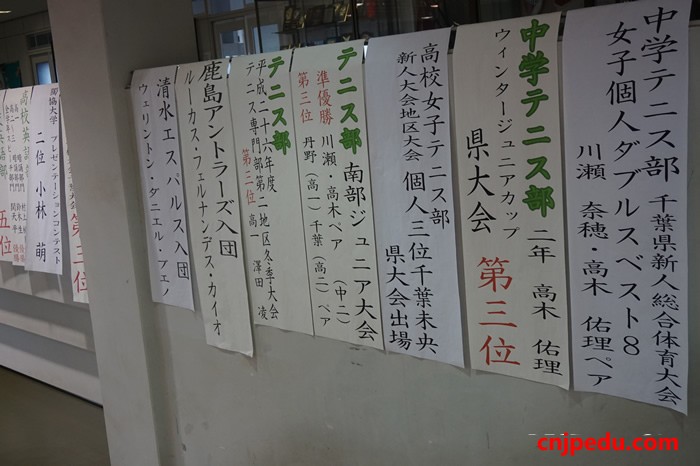 中学テニス部 千葉県新人総合体育大会
女子個人ダブルスベスト8
川瀬 奈穂・高木 佑理ペア
中学テニス部 二年 高木 佑理
ウィンタージュニアカップ
県大会 第三位
高校女子テニス部
新人大会地区大会 個人三位千葉未央
県大会出場
テニス部 南部ジュニア大会
準優勝 川瀬、高木ペア (中二)
第三位 丹野(高一)千葉(高二)ペア
テニス部
平成二十六年度
テニス専門部第二地区冬季大会
第三位 高一 澤田 凌
鹿島アントラーズ入団
ルーカス・フェルナンデス・カイオ
清水エスパルス入団
ウェリントン・ダニエル・ブエノ
第三
プレゼンテーションコンテスト
二位 小林 萌
高校英
五位
cnjpedu.com